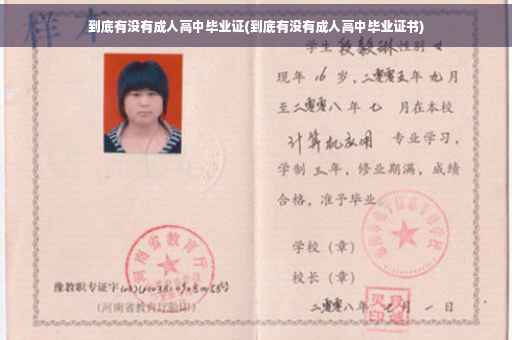 到底有没有成人高中毕业证(到底有没有成人高中毕业证书)
样本
学生段毅琳性别女
现年16岁，二零零五年九月
至二零零八年七月在本校
计算机应用专业学习，
学制三年，修业期满，成绩
合格，准予毕业
学校（章）
校长（章）
二零零八年七月一日
河南省教育厅
豫教职专证字
(河南省教育厅验印)